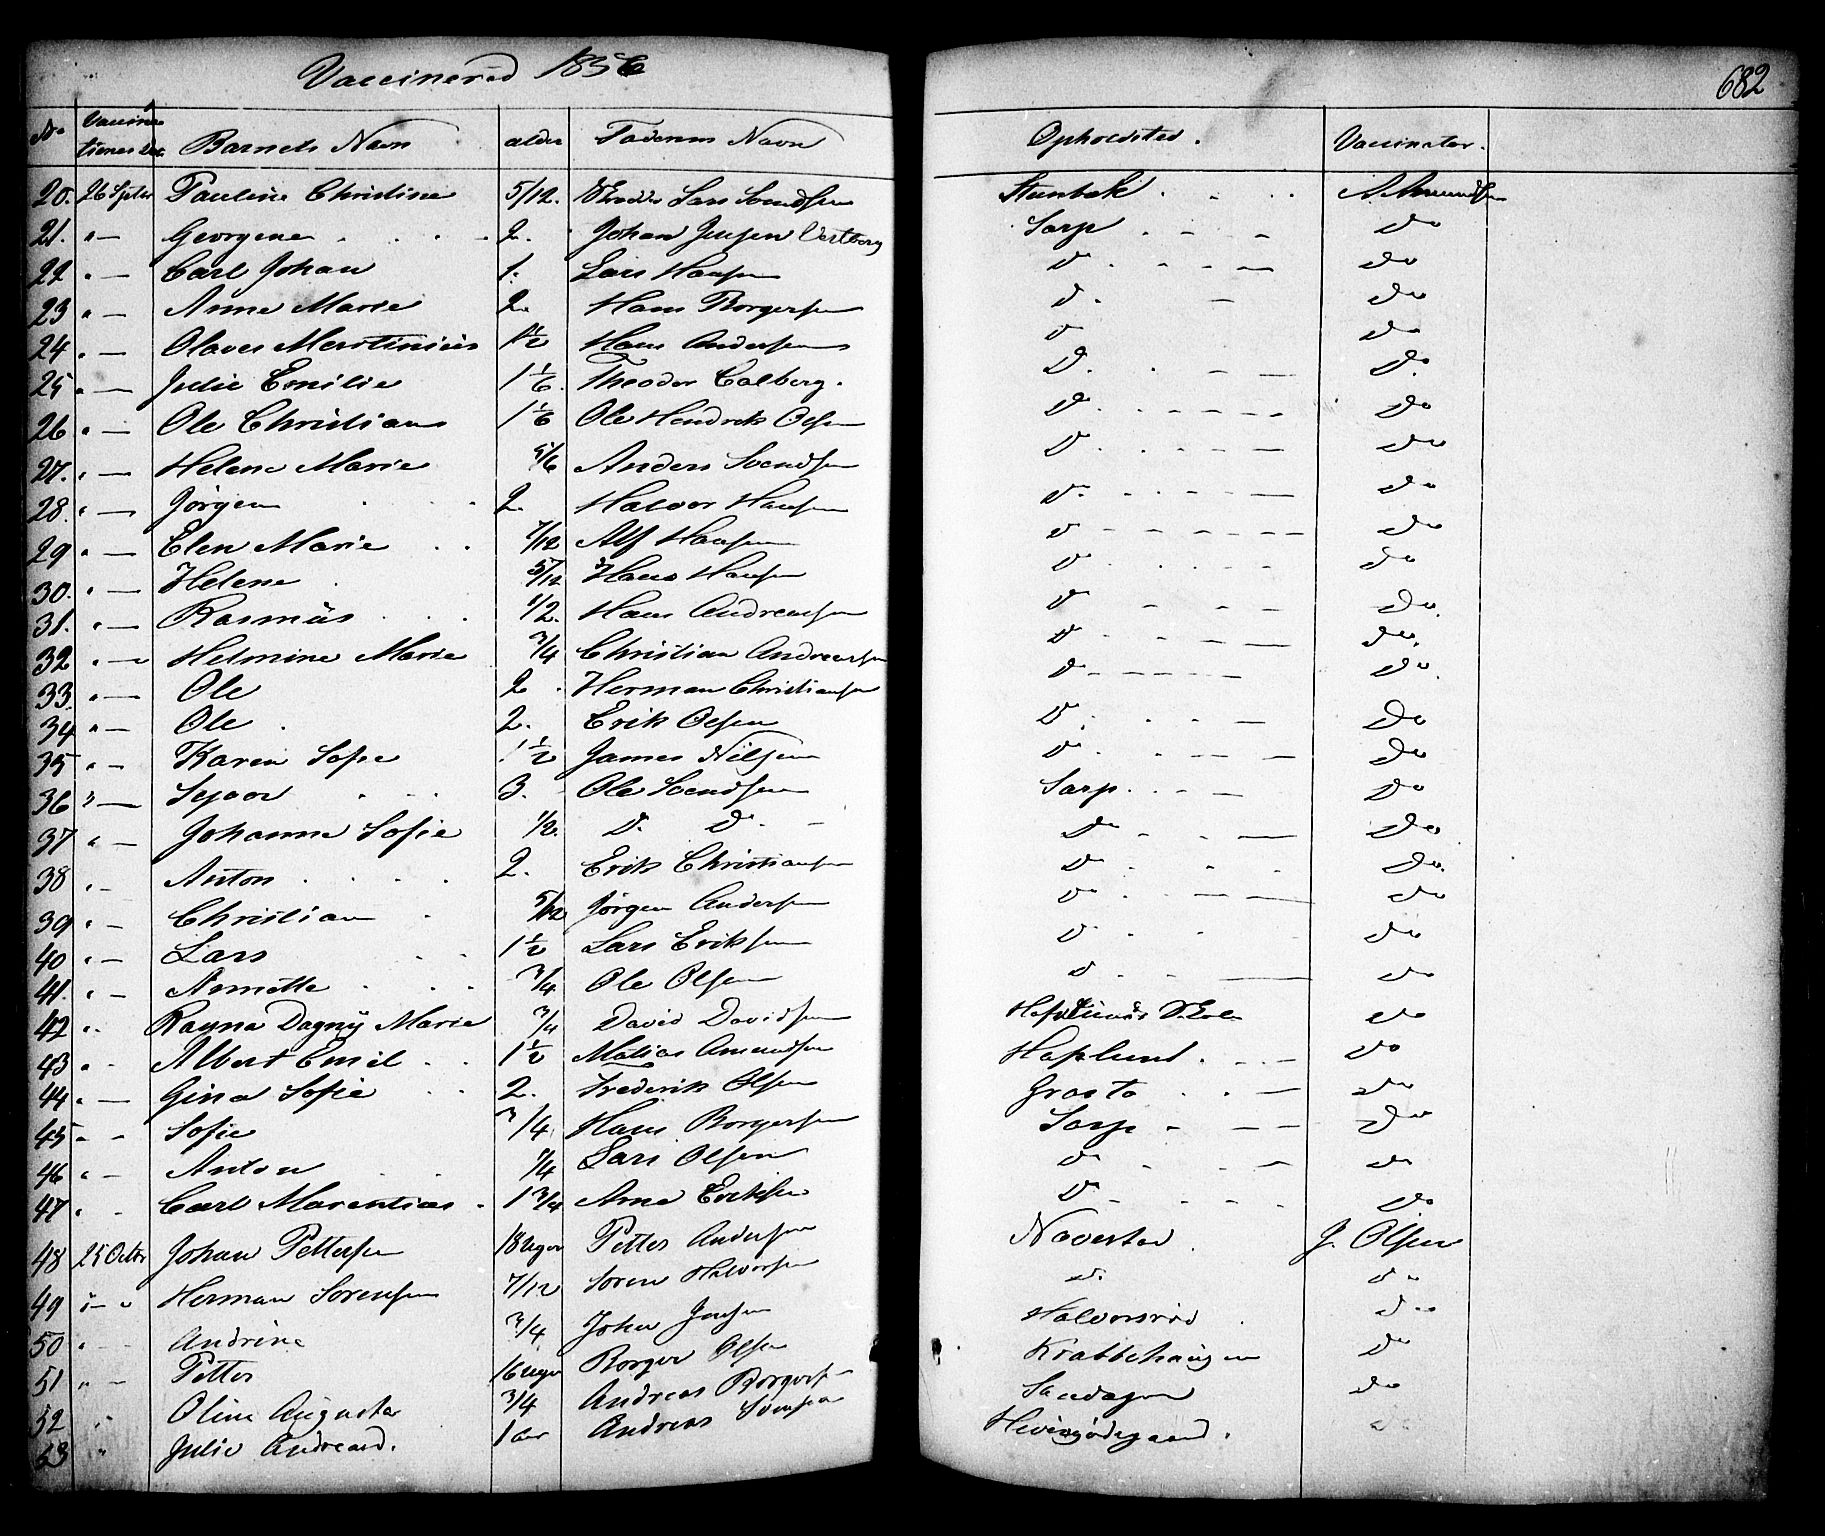 Vaccinered 1856
682
No Vaccinationsdat. Barnets Navn alder Faderens Navn Opholdsted. Vaccinator.
20. 26 Septbr Pauline Christine 5/12. Lars Svendsen Stenbek A Amundsen
21. " — Georgene 2. Johan Jensen Vestberg Sarp Do
22 " — Carl Johan 1. Lars Hansen D Do
23 " — Anne Marie 2. Hans Borgersen D. Do
24 " — Olaves Martinius 1 1/2 Hans Andersen D Do
25 " — Julie Emilie 1 1/6. Theodor Calberg. D. Do.
26 " — Ole Christian 1 1/6 Ole Hendrik Olsen Do Do
27. " — Helene Marie 5/6 Anders Svendsen D Do
28. " — Jørgen 2. Halvor Hansen Do Do
29 " — Elen Marie 7/12 Alf Hansen D Do
30. " — Helene 5/12 Hans Hansen D Do
31. " — Rasmus 1/2. Hans Andreassen Do Do.
32 " — Helmine Marie 3/4 Christian Andreassen Do Do.
33. " — Ole 2 Herman Christiansen Do Do.
34 " — Ole 2. Erik Olsen Do Do
35 " — Karen Sofie 1 1/2 James Nilsen Do Do
36 " — Syvor 3. Ole Svendsen Sarp. Do
37 " — Johanne Sofie 1/2. D. Do. Do Do
38 " — Anton 2. Erik Christiansen Do Do.
39 " — Christian 5/12 Jörgen Andersen Do Do
40 " — Lars 1 1/2 Lars Eriksen Do Do
41. " — Annette 3/4 Ole Olsen D Do
42 " . Ragna Dagny Marie 3/4 David Davidsen Do
43 " . Albert Emil 1 1/2 Matias Amundsen Haflund Do
44 " — Gina Sofie 2. Frederik Olsen Do
45 " - Sofie 3/4 Hans Borgersen Sarp Do
46 " - Anton /4 Lars Olsen Do Do
47 " - Carl Marentius 1 3/4 Arne Eriksen Do Do
48 25 Octbr Johan Pettersen 18 uger Petter Andersen Navestad J. Olsen
49 " Herman Sørensen 7/12 Søren Halvorsen do. Do
50 " Andrine 3/4 Johan Jensen Halvorsrød Do
51 " Petter 16 uger Borger Olsen Do
52 " Oline Augusta 3/4 Andreas Borgers Do
53 " Julie Andread. 1 aar Andreas